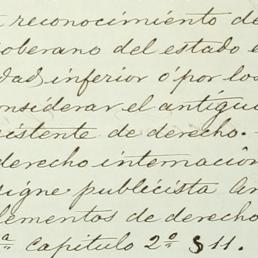 reconocimiento de
soberano del estado e
dad inferior ó por los
considerar el antiguo
sistente de derecho.-
derecho internacion
signe publicista An
elementos de derecho
ª capitulo 2º § 11.